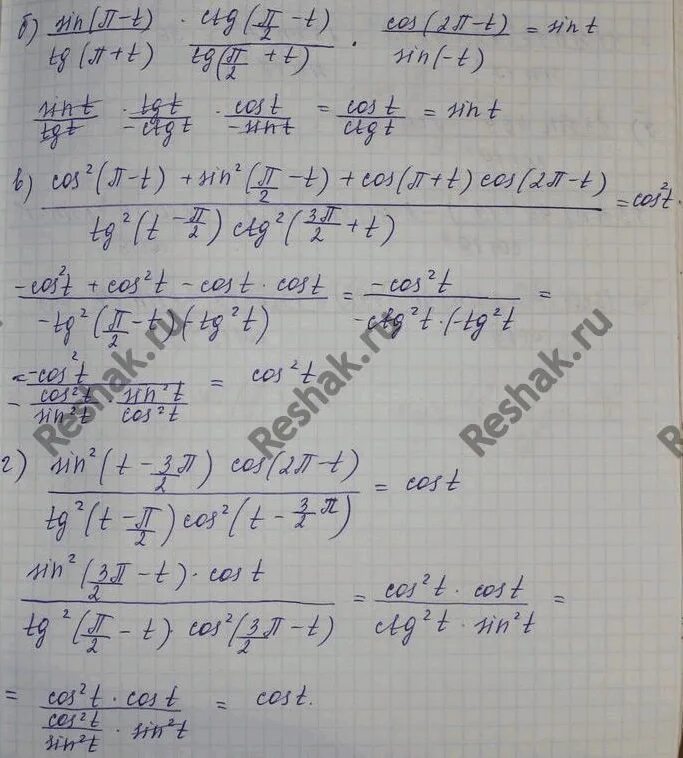 б) sin(π-t)/tg(π+t) · ctg(π/2-t)/tg(π/2+t) · cos(2π-t)/sin(-t) = sin t
sin t/tg t · tg t/-ctg t · cos t/-sin t = cos t/ctg t = sin t
в) cos²(π-t) + sin²(π/2-t) + cos(π+t) cos(2π-t)/tg²(t-π/2) ctg²(3π/2+t) = cos²t.
-cos²t + cos²t - cos t · cos t/-tg²(π/2-t)(-tg²t) = -cos²t/-ctg²t·(-tg²t =
= -cos²t/-cos²t/sin²t · sin²t/cos²t = cos²t
г) sin²(t-3/2π) cos(2π-t)/tg²(t-π/2) cos²(t-3/2π) = cos t
sin²(3/2π-t)·cos t/tg²(π/2-t)· cos²(3/2π-t) = cos²t · cos t/ctg²t · sin²t =
= cos²t · cos t/cos²t/sin²t · sin²t = cos t.
Reshak.ru
Reshak.ru
Reshak.ru